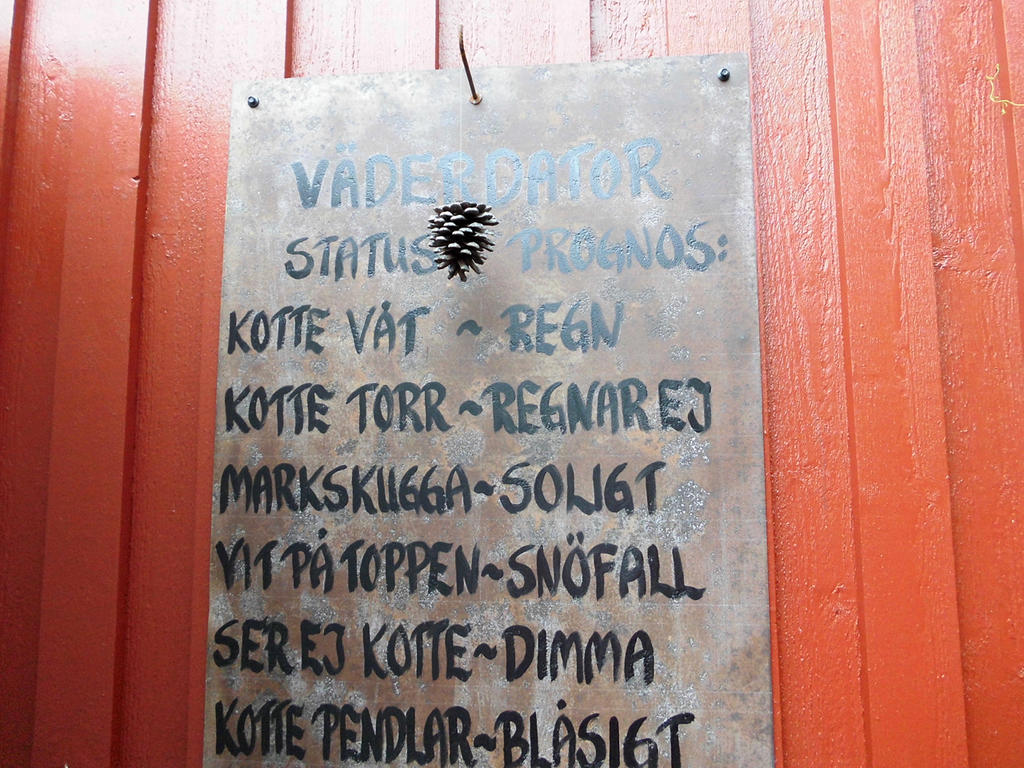 VÄDERDATOR
STATUS PROGNOS:
KOTTE VÅT ~ REGN
KOTTE TORR ~ REGNAR EJ
MARKSKUGGA ~ SOLIGT
VIT PÅ TOPPEN ~ SNÖFALL
SER EJ KOTTE ~ DIMMA
KOTTE PENDLAR ~ BLÅSIGT